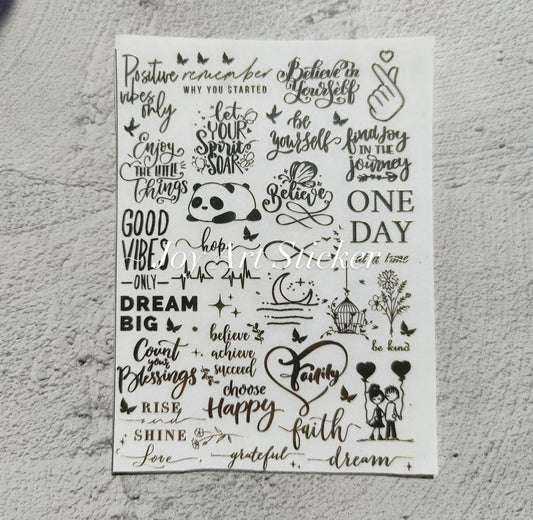 Positive
vibes
only
remember
WHY YOU STARTED
Believe in
Yourself
let
YOUR
Spirit
SOAR
be
yourself
find joy
IN THE
journey
Enjoy
THE LITTLE
Things
Believe
ONE
DAY
at a time
GOOD
VIBES
ONLY
hope
Joy Art Sticker
DREAM
BIG
believe
achieve
succeed
be kind
Count
your
Blessings
Family
choose
Happy
RISE
and
SHINE
faith
Love
grateful
dream